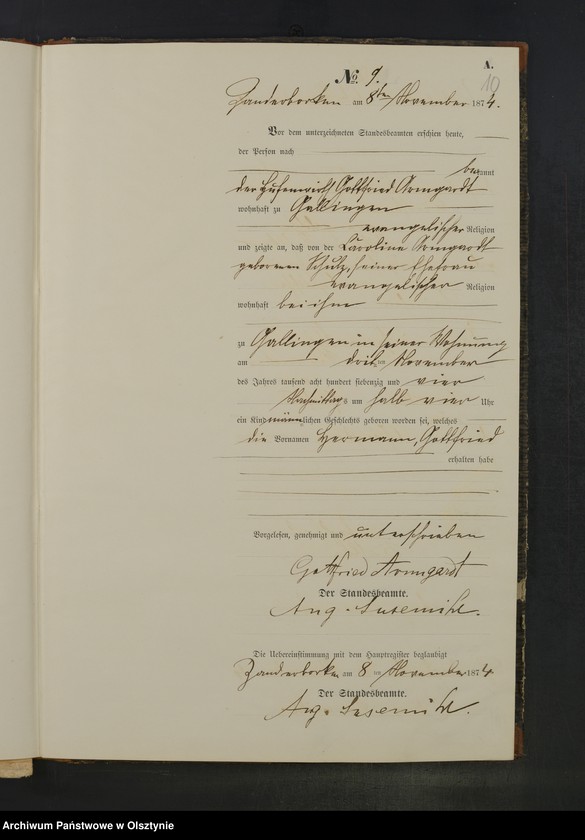 A.
10
No. 9.
Zanderborken am 8ten November 1874.
Vor dem unterzeichneten Standesbeamten erschien heute,
der Person nach
bekannt
der Hufenwirth Gottfried Armgardt
wohnhaft zu Gallingen
evangelischer Religion
und zeigte an, daß von der Caroline Armgardt
geborenen Schulz, seiner Ehefrau
evangelischer Religion
wohnhaft bei ihm
zu Gallingen in seiner Wohnung
am dritten November
des Jahres tausend acht hundert siebenzig und vier
Nachmittags um halb vier Uhr
ein Kind männlichen Geschlechts geboren worden sei, welches
die Vornamen Hermann, Gottfried
erhalten habe
Vorgelesen, genehmigt und unterschrieben
Gottfried Armgardt
Der Standesbeamte.
Aug. Susemihl.
Die Uebereinstimmung mit dem Hauptregister beglaubigt
Zanderborken am 8 ten November 1874
Der Standesbeamte.
Aug. Susemihl.
Archiwum Państwowe w Olsztynie